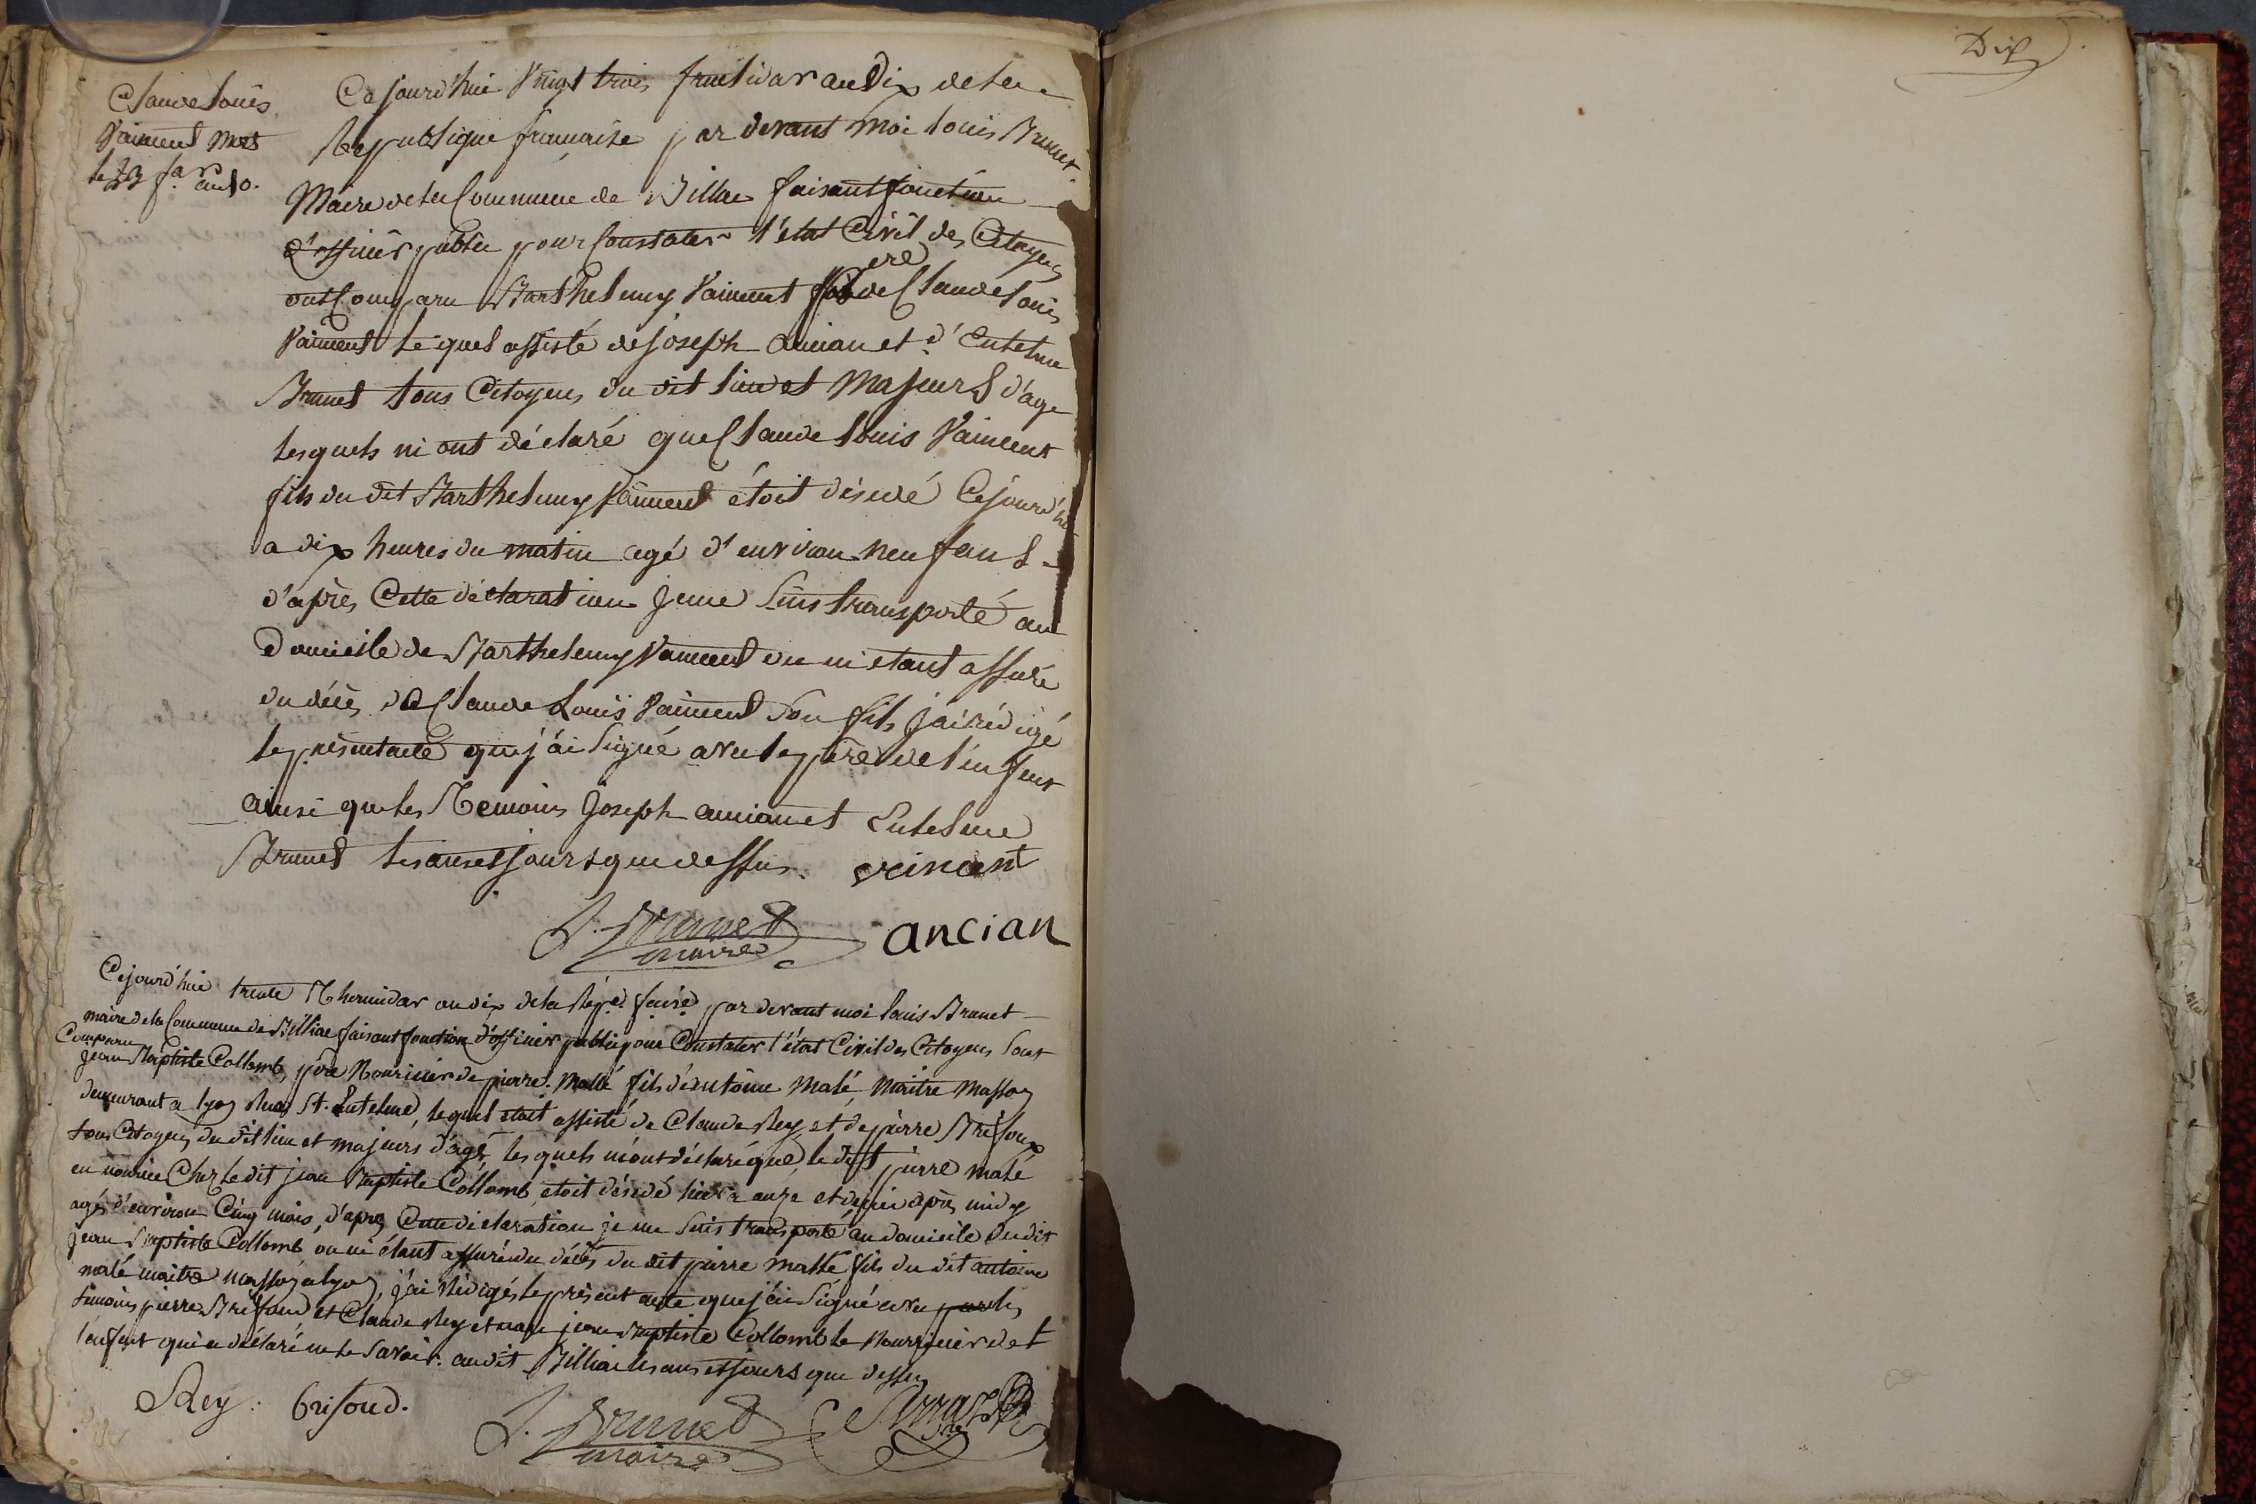 Dix
Claude Louis
Vaincent mort
le 23 f.ar an 10.
Ce jourd'hui vingt trois fructidor an Dix de la
Republique francaise par devant moi Louis Brunet
Maire de la Commune de Billiae faisant fonction
d'officier public pour Constater l'état Civil des Citoyens
ont Comparu Barthelemy Vaincent père de Claude Louis
Vaincent lequel assisté de joseph ancian et d'Entelme
Brunet tous Citoyens du dit lieu et Majeurs d'age
lesquels m'ont déclaré que Claude Louis Vaincent
fils du dit Barthelemy Vaincent étoit décedé Cejourd'hui
a dix heures du matin agé d'environ neuf ans
d'après Cette déclaration je me suis transporté au
Domicile de Barthelemy Vaincent ou m'etant assuré
du décès de Claude Louis Vaincent son fils j'ai rédigé
le présent acte que j'ai signé avec le père de l'enfant
ainsi que les Temoins Joseph ancian et Entelme
Brunet les ans et jours que dessus. vincent
L. Brunet ancian
maire
Cejourd'hui trente Thermidor an dix de la Rép.e fran.e par devant moi Louis Brunet
maire de la Commune de Billiae faisant fonction d'officier public pour Constater l'état Civil des Citoyens sont
Comparu
Jean Baptiste Collomb, père Nouricier de pierre Mallé fils d'éantoine Malé, Maitre Masson
demeurant a lyon Rue St. Entelme, lequel etait assisté de Claude Rey et de pierre Brifoux
tous Citoyens du dit lieu et majeurs d'age lesquels m'ont déclaré que le dit pierre malé
en nourice Chez le dit jean Baptiste Collomb etoit décedé hier a onze et demi après midy
agé d'environ Cinq mois, d'apres Cette déclaration je me suis transporté au domicile du dit
Jean Baptiste Collomb ou m'étant assuré du décès du dit pierre mallé fils du dit antoine
malé maitre masson a lyon, j'ai Rédigés le présent acte que j'ai signé avec les
temoins pierre Brifoud et Claude Rey et non jean Baptiste Collomb le Nourricier de
l'enfant qui a déclaré ne le savoir. au dit Billiae les ans et jours que dessus
Rey. Brifoud.
L. Brunet
maire